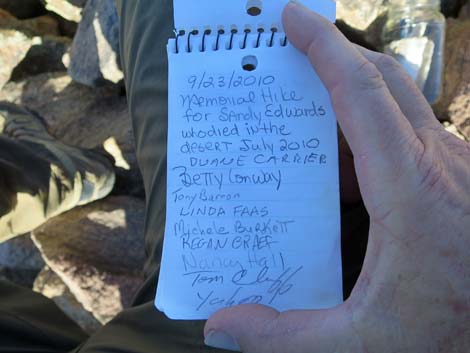 9/23/2010
Memorial Hike
for Sandy Edwards
who died in the
desert July 2010
DUANE CARRIER
Betty Conway
Tony Barron
LINDA FAAS
Michele Burkett
KEGAN GRAEF
Nancy Hall
Tom